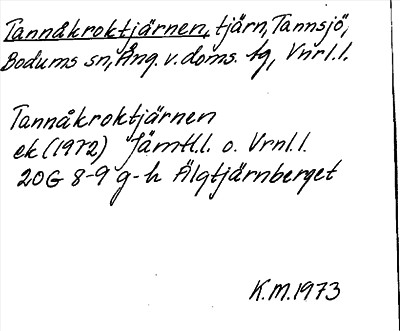 Tannåkroktjärnen, tjärn, Tannsjö,
Bodums sn, Ång. v. doms. tg, Vnrl.l.
Tannåkroktjärnen
ek (1972) Jämtl.l. o. Vrnl.l.
20G 8-9 g-h Älgtjärnberget
K.M. 1973